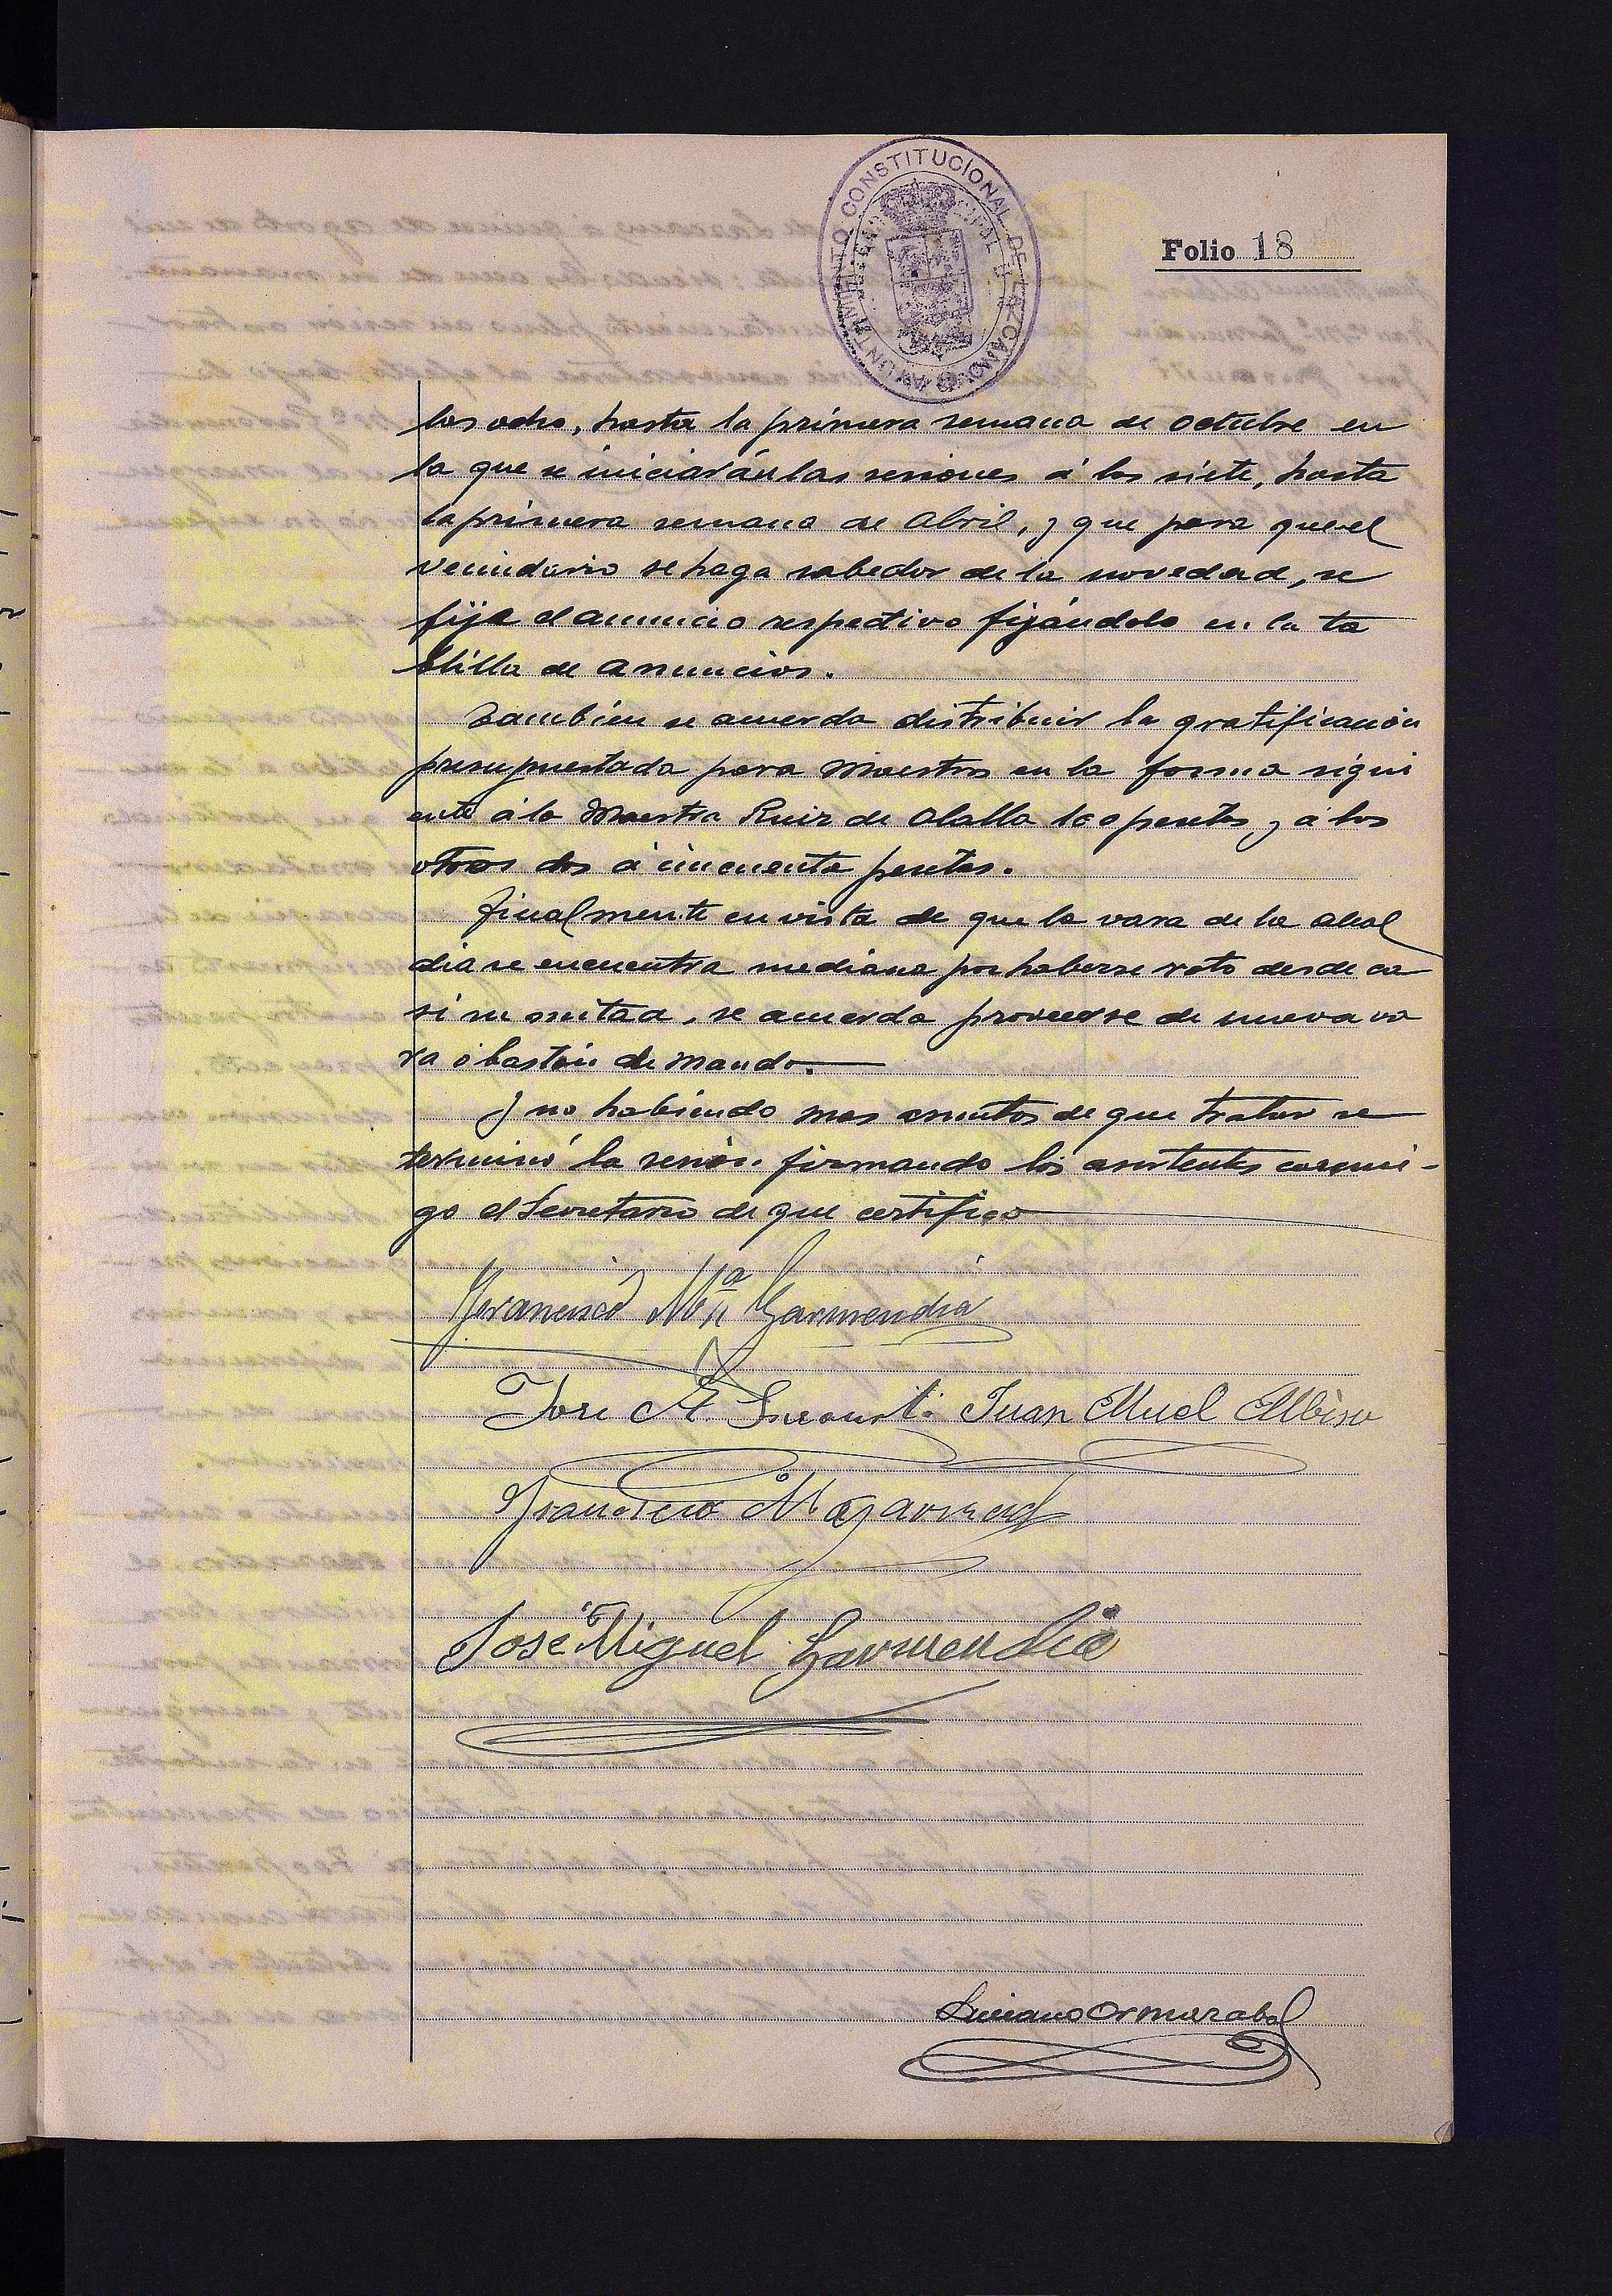 AYUNTAMIENTO CONSTITUCIONAL DE LAZCANO
Folio 18
las ocho, hasta la primera semana de octubre en
la que se iniciarán las sesiones á las siete, hasta
la primera semana de Abril, y que para que el
vecindario se haga sabedor de la novedad, se
fije el anuncio respectivo fijándolo en la ta
blilla de anuncios.
También se acuerda distribuir la gratificación
presupuestada para Maestros en la forma sigui
ente á la Maestra Ruiz de Olalla 100 pesetas y á los
otros dos á cincuenta pesetas.
Finalmente en vista de que la vara de la Alcal
dia se encuentra mediana por haberse roto desde ca
si su mitad, se acuerda proveerse de nueva va
ra ó bastón de mando.
Y no habiendo mas asuntos de que tratar se
terminó la sesión firmando los asistentes conmi-
go el Secretario de que certifico
Francisco Mª Garmendia
José A. Juan Muel Albisu
Francisco Mª Garmend
José Miguel Garmendia
Luciano Ormazabal